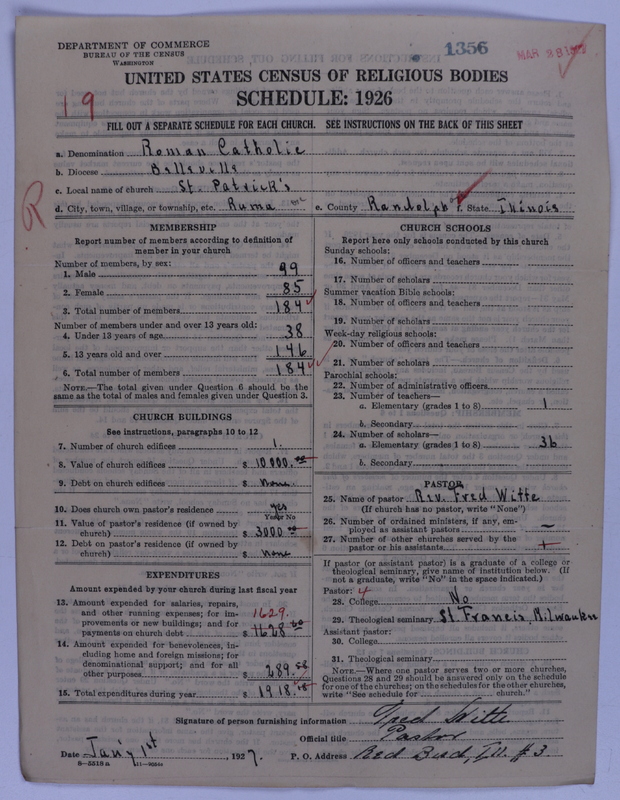 DEPARTMENT OF COMMERCE
BUREAU OF THE CENSUS
WASHINGTON
1356
MAR 28
UNITED STATES CENSUS OF RELIGIOUS BODIES
SCHEDULE: 1926
19
FILL OUT A SEPARATE SCHEDULE FOR EACH CHURCH. SEE INSTRUCTIONS ON THE BACK OF THIS SHEET
R
a. Denomination Roman Catholic
b. Diocese Belleville
c. Local name of church St. Patrick's
d. City, town, village, or township, etc. Ruma e. County Randolph f. State Illinois
MEMBERSHIP
Report number of members according to definition of
member in your church
Number of members, by sex:
1. Male 99
2. Female 85
3. Total number of members 184
Number of members under and over 13 years old:
4. Under 13 years of age 38
5. 13 years old and over 146
6. Total number of members 184
NOTE.—The total given under Question 6 should be the
same as the total of males and females given under Question 3.
CHURCH BUILDINGS
See instructions, paragraphs 10 to 12
7. Number of church edifices 1.
8. Value of church edifices $ 10000.
9. Debt on church edifices $ none.
10. Does church own pastor's residence yes
Yes or No
11. Value of pastor's residence (if owned by
church) $ 3000
12. Debt on pastor's residence (if owned by
church) $ none
EXPENDITURES
Amount expended by your church during last fiscal year
13. Amount expended for salaries, repairs,
and other running expenses; for im-
provements or new buildings; and for
payments on church debt $ 1628 60
1629.
14. Amount expended for benevolences, in-
cluding home and foreign missions; for
denominational support; and for all
other purposes $ 289.58
15. Total expenditures during year $ 1918.18
CHURCH SCHOOLS
Report here only schools conducted by this church
Sunday schools:
16. Number of officers and teachers
17. Number of scholars
Summer vacation Bible schools:
18. Number of officers and teachers
19. Number of scholars
Week-day religious schools:
20. Number of officers and teachers
21. Number of scholars
Parochial schools:
22. Number of administrative officers
23. Number of teachers—
a. Elementary (grades 1 to 8) 1
b. Secondary
24. Number of scholars—
a. Elementary (grades 1 to 8) 36
b. Secondary
PASTOR
25. Name of pastor Rev. Fred Witte
(If church has no pastor, write "None")
26. Number of ordained ministers, if any, em-
ployed as assistant pastors —
27. Number of other churches served by the
pastor or his assistants
If pastor (or assistant pastor) is a graduate of a college or
theological seminary, give name of institution below. (If
not a graduate, write "No" in the space indicated.)
Pastor: 4
28. College No
29. Theological seminary St. Francis, Milwaukee
Assistant pastor:
30. College
31. Theological seminary
NOTE.—Where one pastor serves two or more churches,
Questions 28 and 29 should be answered only on the schedule
for one of the churches; on the schedules for the other churches,
write "See schedule for church."
Signature of person furnishing information Fred Witte
Official title Pastor
Date Jan'y 1st, 1927. P. O. Address Red Bud, Ill. # 3
8—5518 a